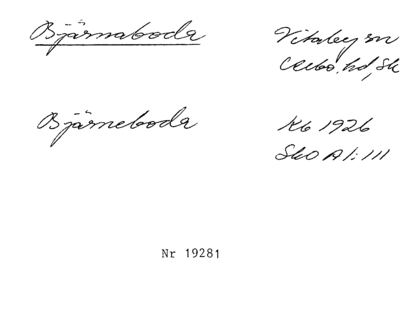 Bjärnaboda Vitaby sn
Albo hd, Sk
Bjärneboda Kb 1926
SkO A1:111
Nr 19281